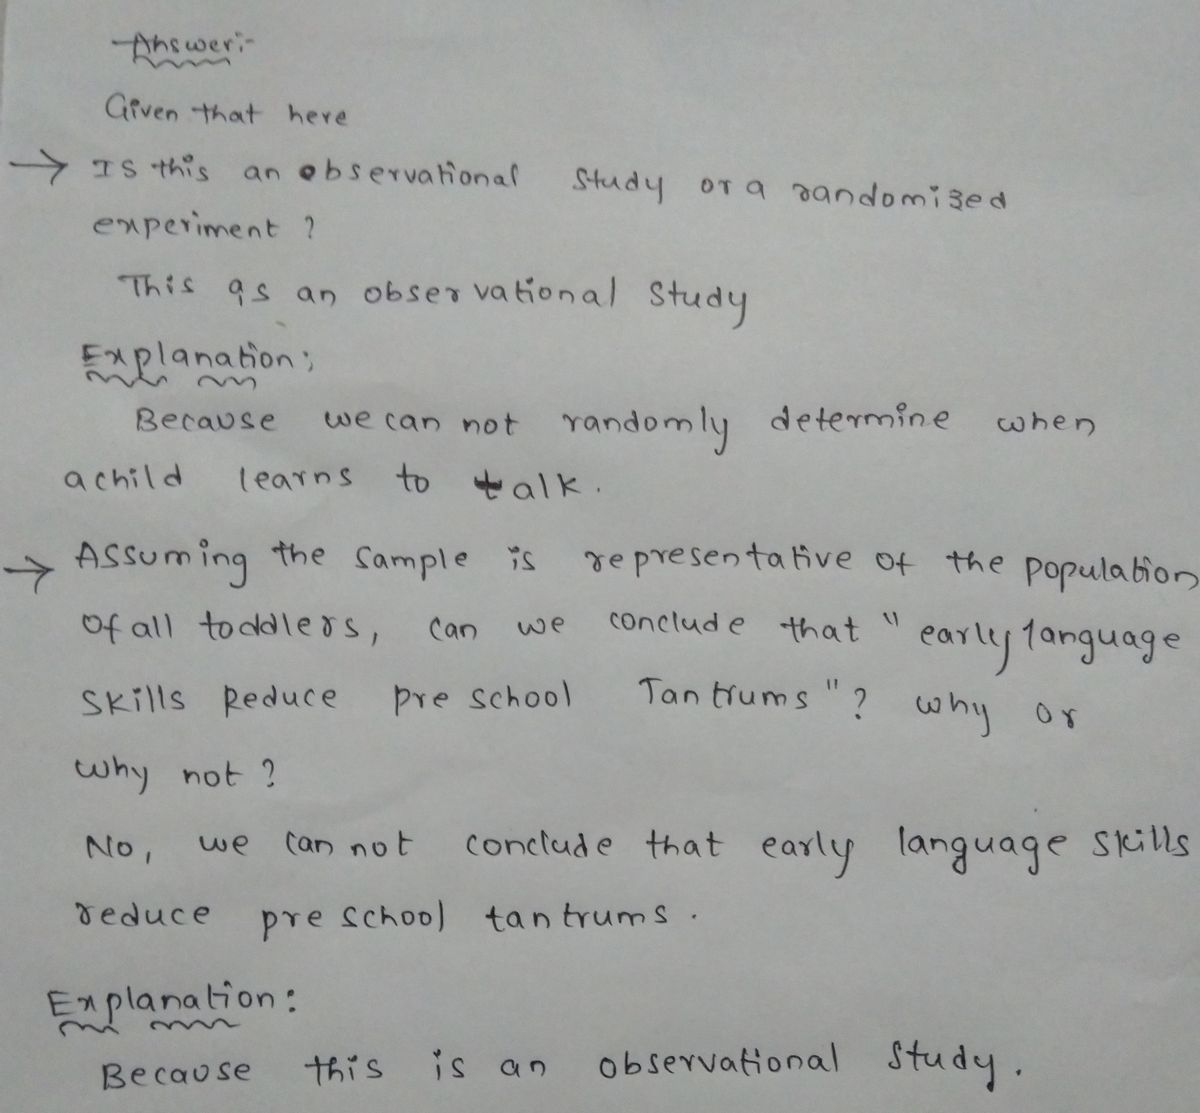 Answer:-
Given that here
→ Is this an observational study or a randomized
experiment ?
This is an observational study
Explanation;
Because we can not randomly determine when
a child learns to talk.
→ Assuming the sample is representative of the population
of all toddlers, can we conclude that "early language
skills Reduce pre school Tantrums"? why or
why not ?
No, we can not conclude that early language skills
reduce pre school tantrums.
Explanation:
Because this is an observational study.